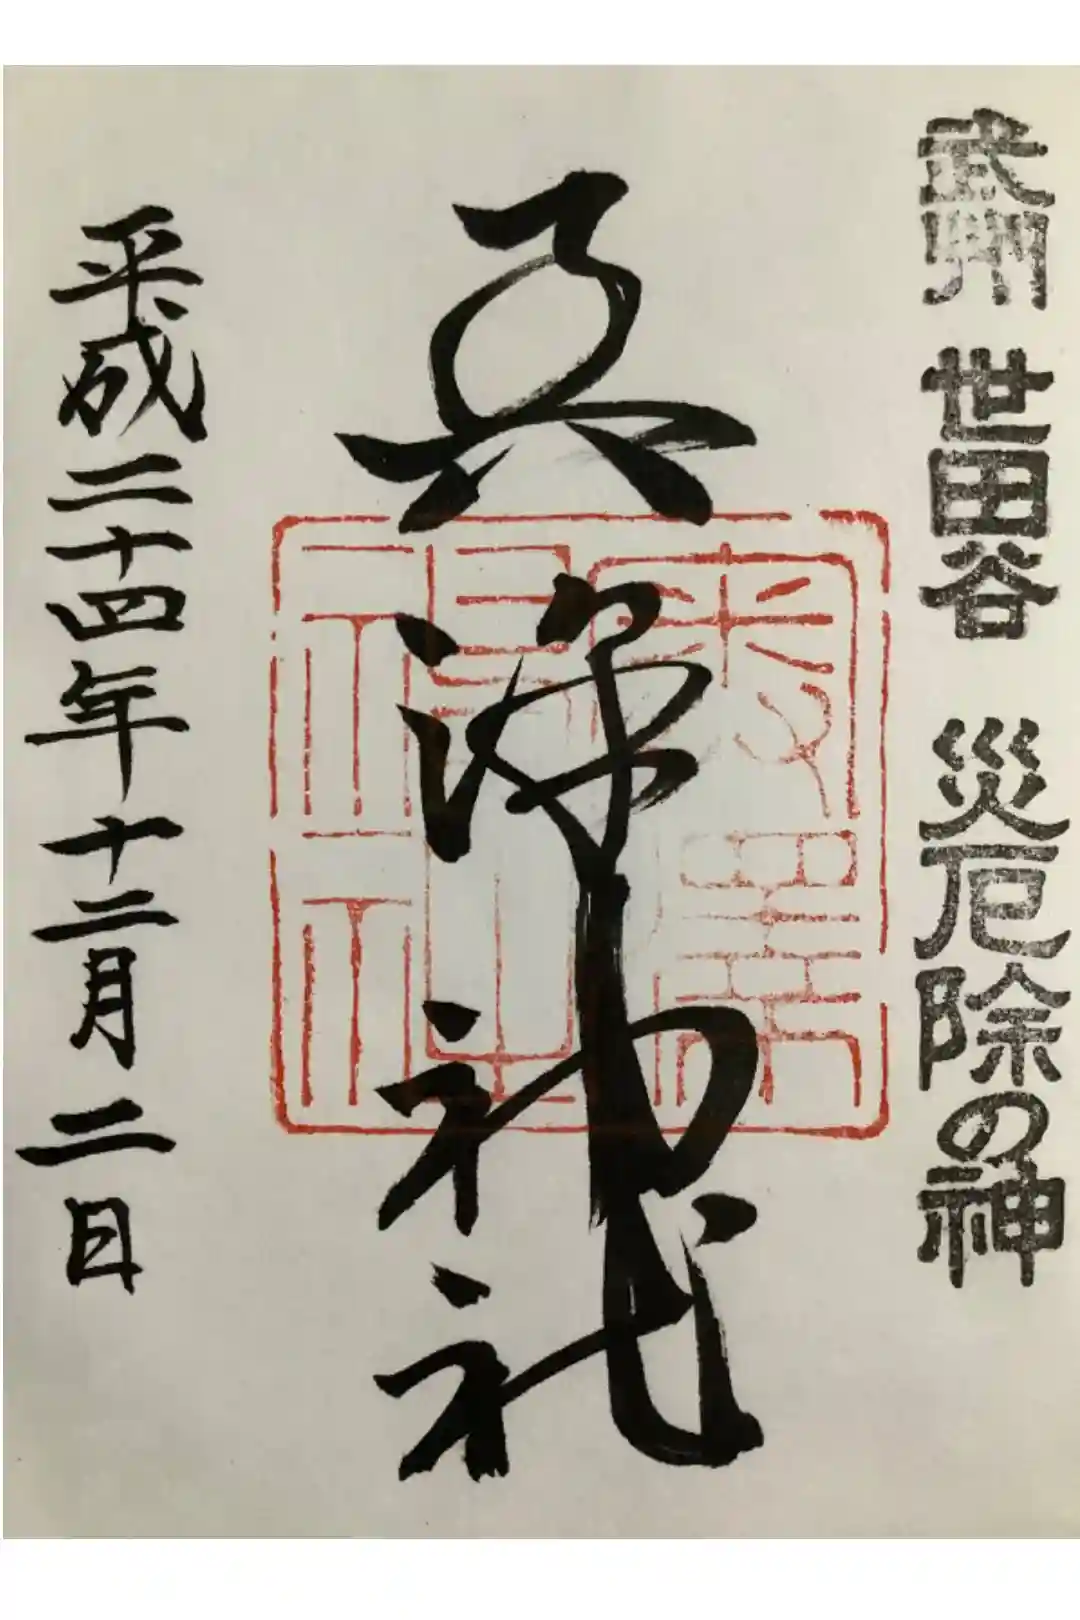 武州 世田谷 災厄除の神
奥澤神社
平成二十四年十二月二日